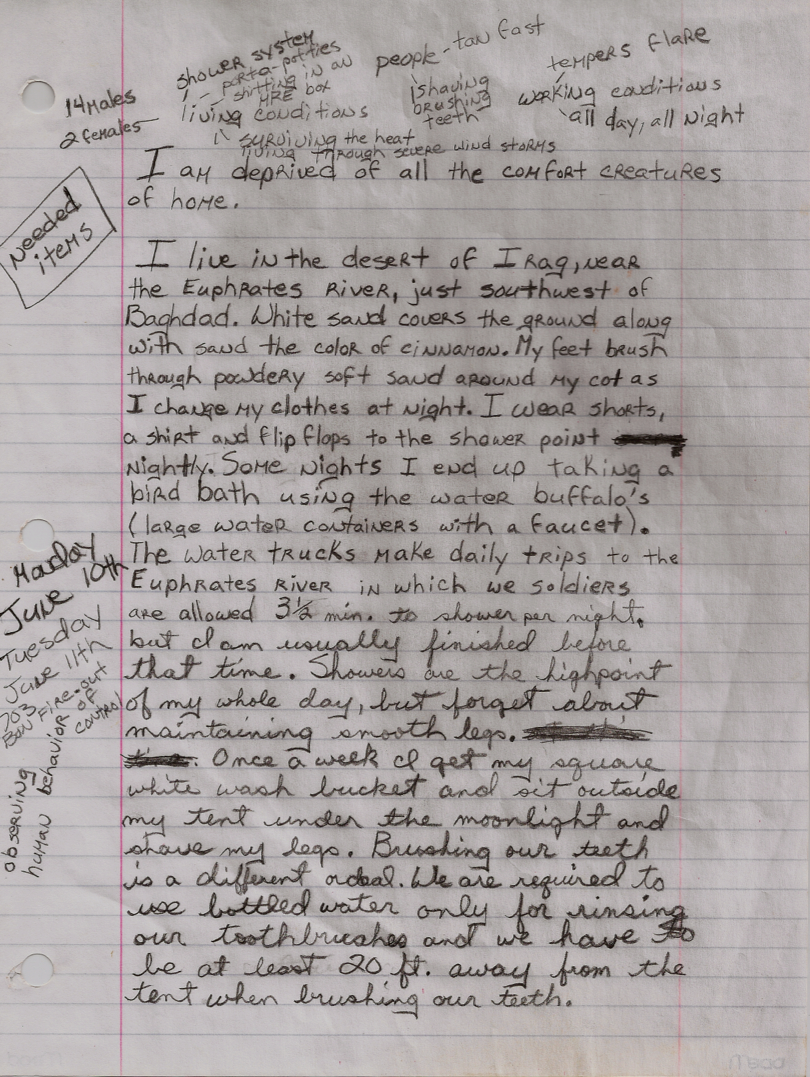 shower system
- porta-potties
- shitting in an
MRE box
people - tan fast
tempers flare
14 males
2 females
living conditions
shaving
brushing
teeth
working conditions
all day, all night
surviving the heat
living through severe wind storms
I am deprived of all the comfort creatures
of home.
Needed
items
I live in the desert of Iraq, near
the Euphrates River, just southwest of
Baghdad. White sand covers the ground along
with sand the color of cinnamon. My feet brush
through powdery soft sand around my cot as
I change my clothes at night. I wear shorts,
a shirt and flip flops to the shower point
nightly. Some nights I end up taking a
bird bath using the water buffalo's
(large water containers with a faucet).
The water trucks make daily trips to the
Euphrates River in which we soldiers
are allowed 3½ min. to shower per night,
but I am usually finished before
that time. Showers are the highpoint
of my whole day, but forget about
maintaining smooth legs.
Once a week I get my square
white wash bucket and sit outside
my tent under the moonlight and
shave my legs. Brushing our teeth
is a different ordeal. We are required to
use bottled water only for rinsing
our toothbrushes and we have to
be at least 20 ft. away from the
tent when brushing our teeth.
Monday
June 10th
Tuesday
June 11th
703
Bon fire-out
of control
observing
human behavior